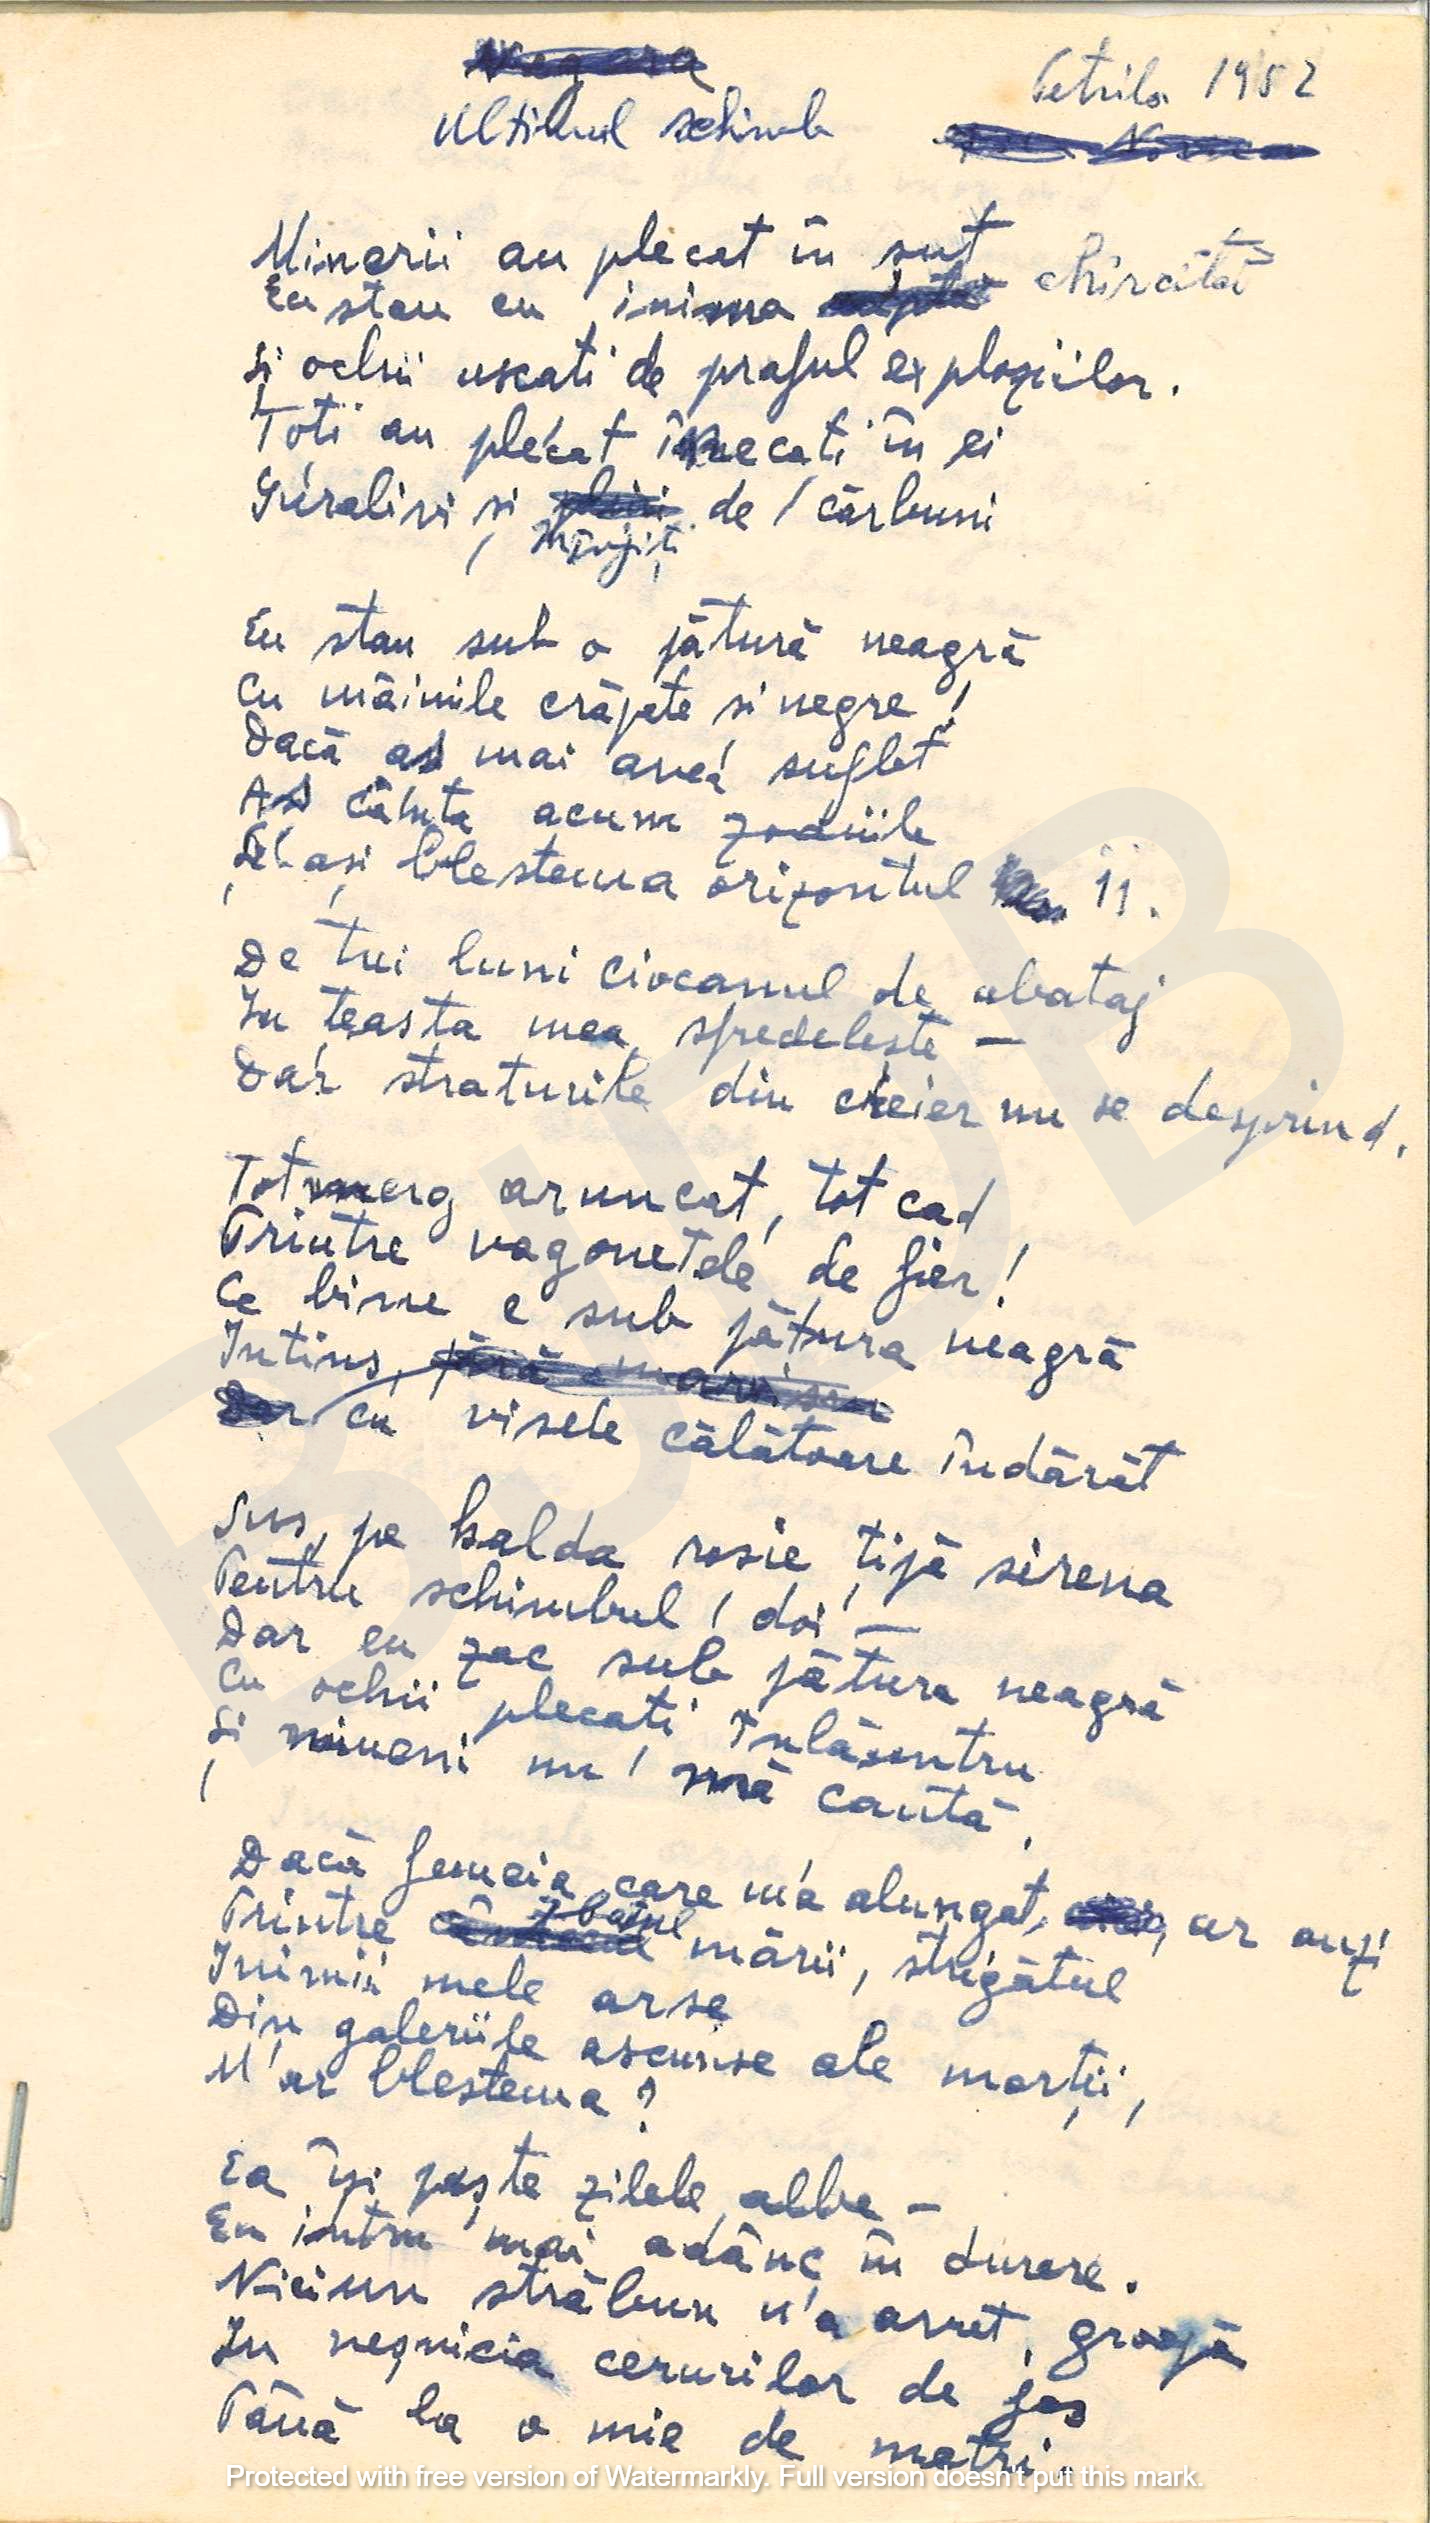 Ultimul schimb
Petrila 1952
Minerii au plecat în șut
Eu stau cu inima chircită
Și ochii uscati de praful exploziilor.
Toți au plecat înecați în ei
Guralivi și mînjiți de cărbuni
Eu stau sub o pătură neagră
Cu mâinile crăpate și negre!
Dacă aș mai avea suflet
Aș căuta acum zodiile
Și aș blestema orizontul 11.
De trei luni ciocanul de abataj
In țeasta mea sfredelește —
Dar straturile din creier nu se desprind.
Tot merg aruncat, tot cad
Printre vagonetele de fier!
Ce bine e sub pătura neagră
Intins,
cu visele călătoare îndărăt
Sus, pe halda roșie țipă sirena
Pentru schimbul doi —
Dar eu zac sub pătura neagră
Cu ochii plecați înlăuntru
Și nimeni nu mă caută.
Dacă femeia care m'a alungat, ar auzi
Printre zbațul mării, strigătul
Inimii mele arse
Din galeriile ascunse ale morții,
M'ar blestema?
Ea își paște zilele albe —
Eu intru mai adânc în durere.
Niciun străbun n'a avut groapă
In veșnicia cerurilor de jos
Până la o mie de metri.
BUDB
Protected with free version of Watermarkly. Full version doesn't put this mark.